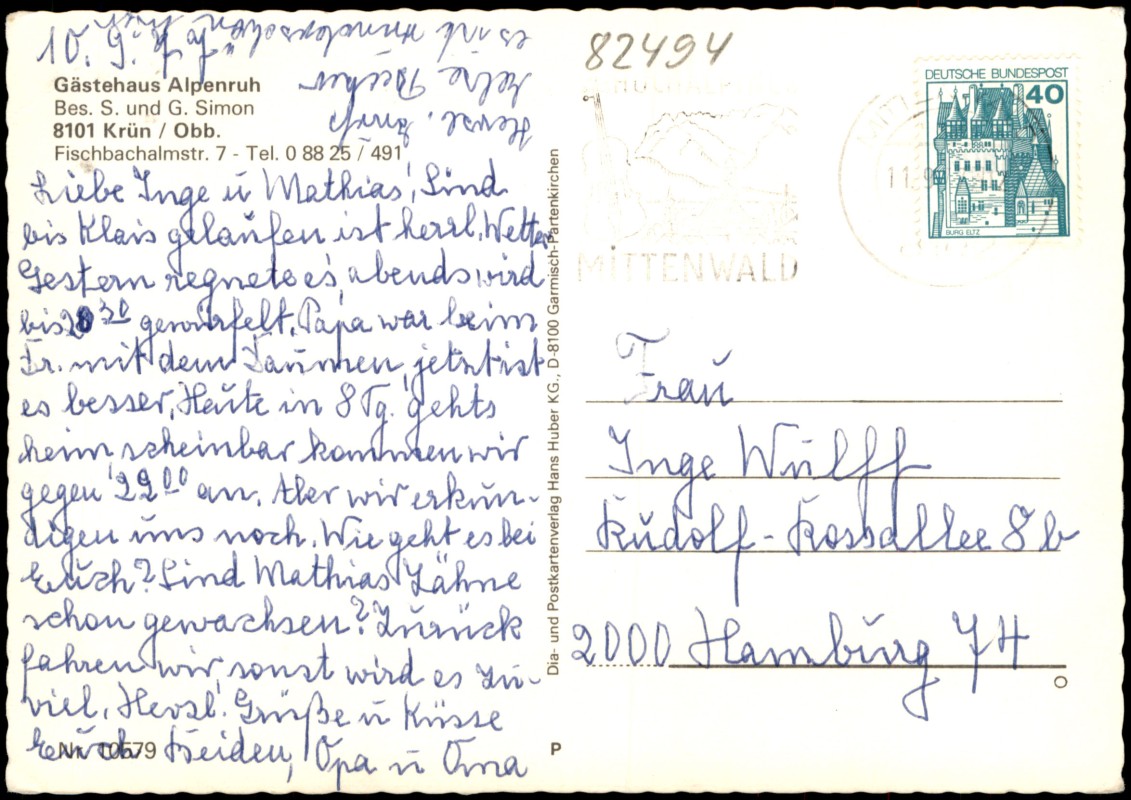 10. 9. 77
Gästehaus Alpenruh
Bes. S. und G. Simon
8101 Krün / Obb.
Fischbachalmstr. 7 - Tel. 0 88 25 / 491
Liebe Inge u Mathias! Sind
bis Klais gelaufen ist herrl. Wetter
Gestern regnete es, abends wird
bis 20 30 gewürfelt. Papa war beim
Fr. mit dem Daumen, jetzt ist
es besser. Heute in 8 Tg. gehts
heim, scheinbar kommen wir
gegen 22 00 an. Aber wir erkun-
digen uns noch. Wie geht es bei
Euch? Sind Mathias Zähne
schon gewachsen? Zurück
fahren wir, sonst wird es zu-
viel. Herzl. Grüße u Küsse
Euch beiden, Opa u Oma
Nr. 10579
es ist wunderschön hier
Herzl. Gruß
Dia- und Postkartenverlag Hans Huber KG., D-8100 Garmisch-Partenkirchen
P
82494
MITTENWALD
11.9
DEUTSCHE BUNDESPOST
40
BURG ELTZ
Frau
Inge Wulff
Rudolf-Rossallee 8 b
2000 Hamburg 74